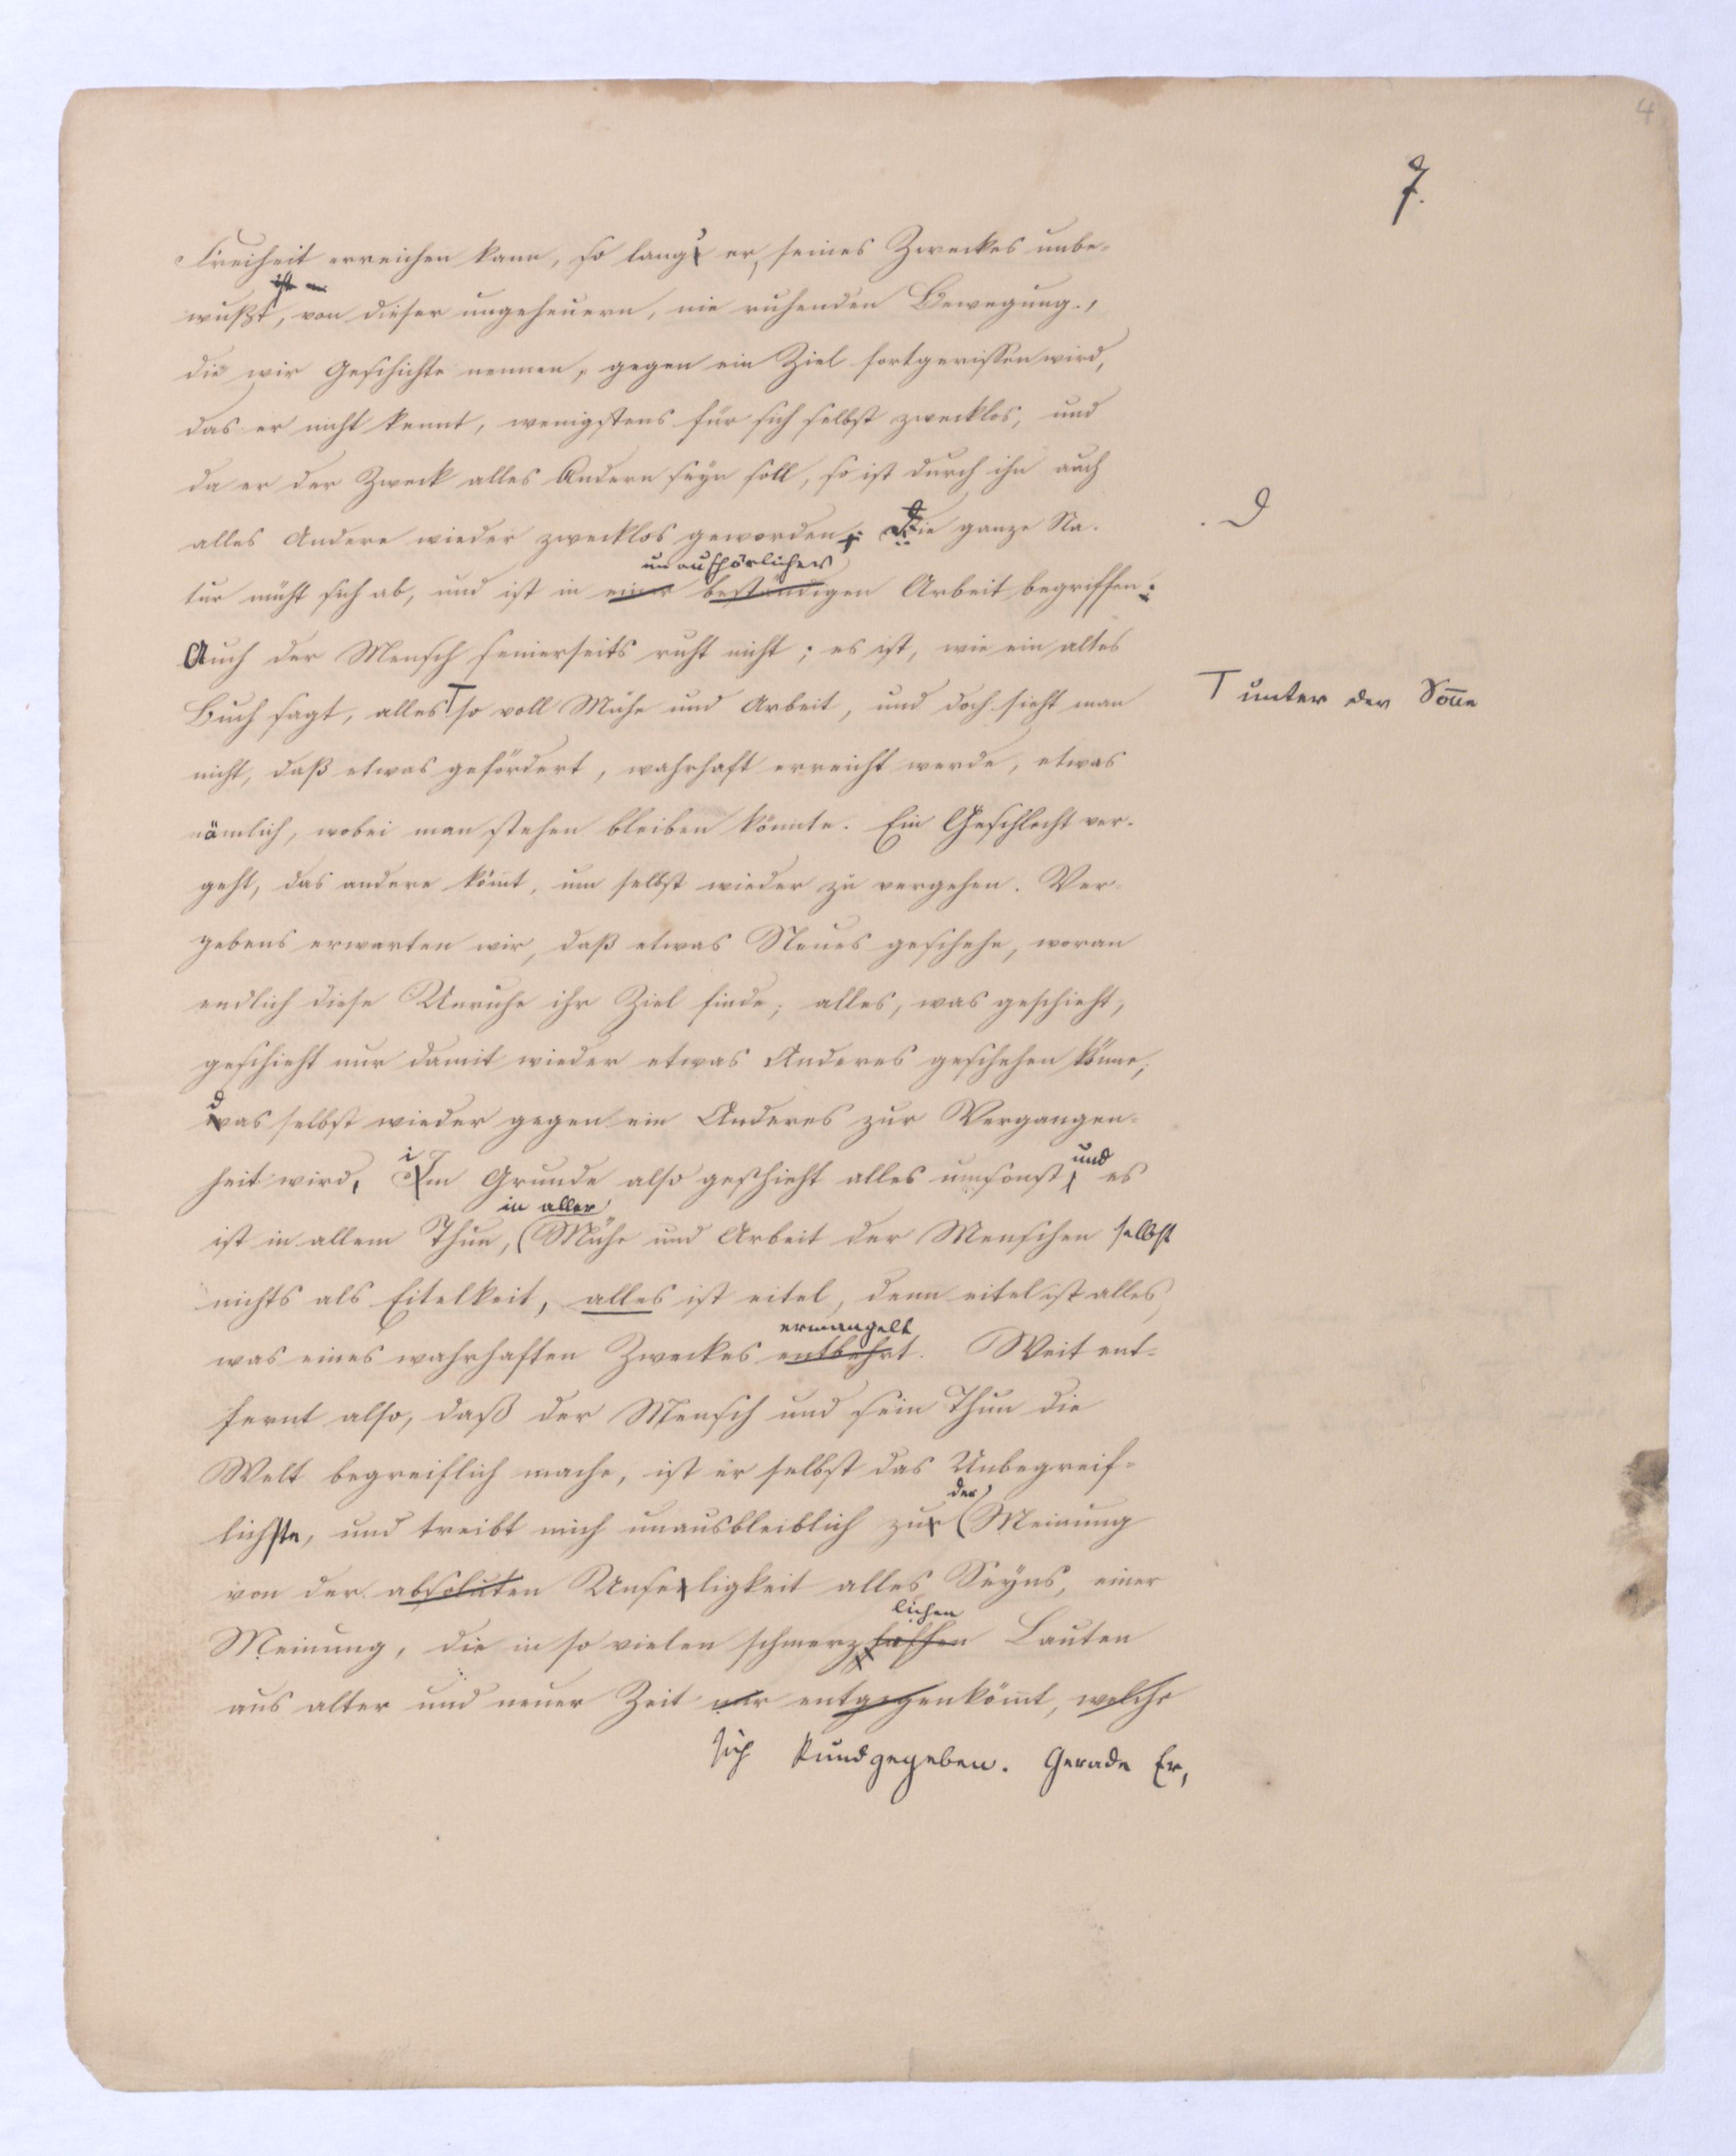 4
7.
Freiheit erreichen kann, so lang er, seines Zweckes unbe-
wußt, von dieser ungeheuern, nie ruhenden Bewegung,
die wir Geschichte nennen, gegen ein Ziel fortgerissen wird,
das er nicht kennt, wenigstens für sich selbst zwecklos, und
da er der Zweck alles Andern seyn soll, so ist durch ihn auch
alles Andere wieder zwecklos geworden. Die ganze Na-
D
unaufhörlicher
tur müht sich ab, und ist in einer beständigen Arbeit begriffen.
Auch der Mensch seinerseits ruht nicht; es ist, wie ein altes
Buch sagt, alles T so voll Mühe und Arbeit, und doch sieht man
T unter der Soñe
nicht, daß etwas gefördert, wahrhaft erreicht werde, etwas
nämlich, wobei man stehen bleiben könnte. Ein Geschlecht ver-
geht, das andere kom̄t, um selbst wieder zu vergehen. Ver-
gebens erwarten wir, daß etwas Neues geschehe, woran
endlich diese Unruhe ihr Ziel finde; alles, was geschieht,
geschieht nur damit wieder etwas Anderes geschehen könne,
das selbst wieder gegen ein Anderes zur Vergangen-
heit wird, im Grunde also geschieht alles umsonst, und es
in aller
ist in allem Thun, (Mühe und Arbeit der Menschen selbst
nichts als Eitelkeit, alles ist eitel, denn eitel ist alles,
ermangelt
was eines wahrhaften Zweckes entbehrt. Weit ent-
fernt also, daß der Mensch und sein Thun die
Welt begreiflich mache, ist er selbst das Unbegreif-
der
lichste, und treibt mich unausbleiblich zur (Meinung
von der absoluten Unseligkeit alles Seyns, einer
lichen
Meinung, die in so vielen schmerzhaften Lauten
aus alter und neuer Zeit mir entgegenköm̄t, welche
sich kundgegeben. Gerade Er,